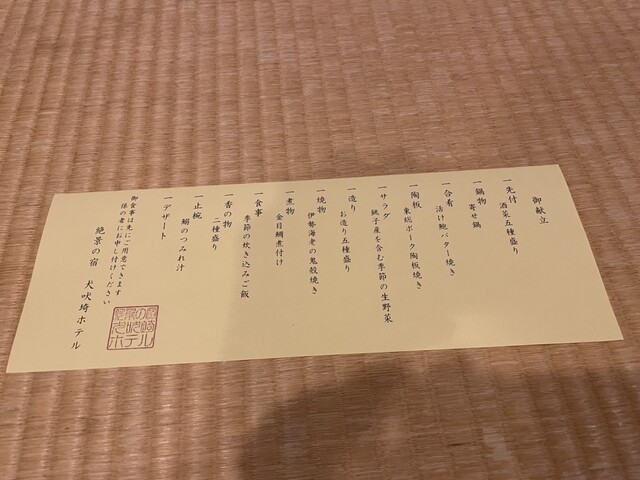 御献立
一先付
酒菜五種盛り
一鍋物
寄せ鍋
一合肴
活け鮑バター焼き
一陶板
東総ポーク陶板焼き
一サラダ
銚子産を含む季節の生野菜
一造り
お造り五種盛り
一焼物
伊勢海老の鬼殻焼き
一煮物
金目鯛煮付け
一食事
季節の炊き込みご飯
一香の物
二種盛り
一止椀
鰯のつみれ汁
一デザート
御食事は先にご用意できます
係の者にお申し付けください
絶景の宿 犬吠埼ホテル